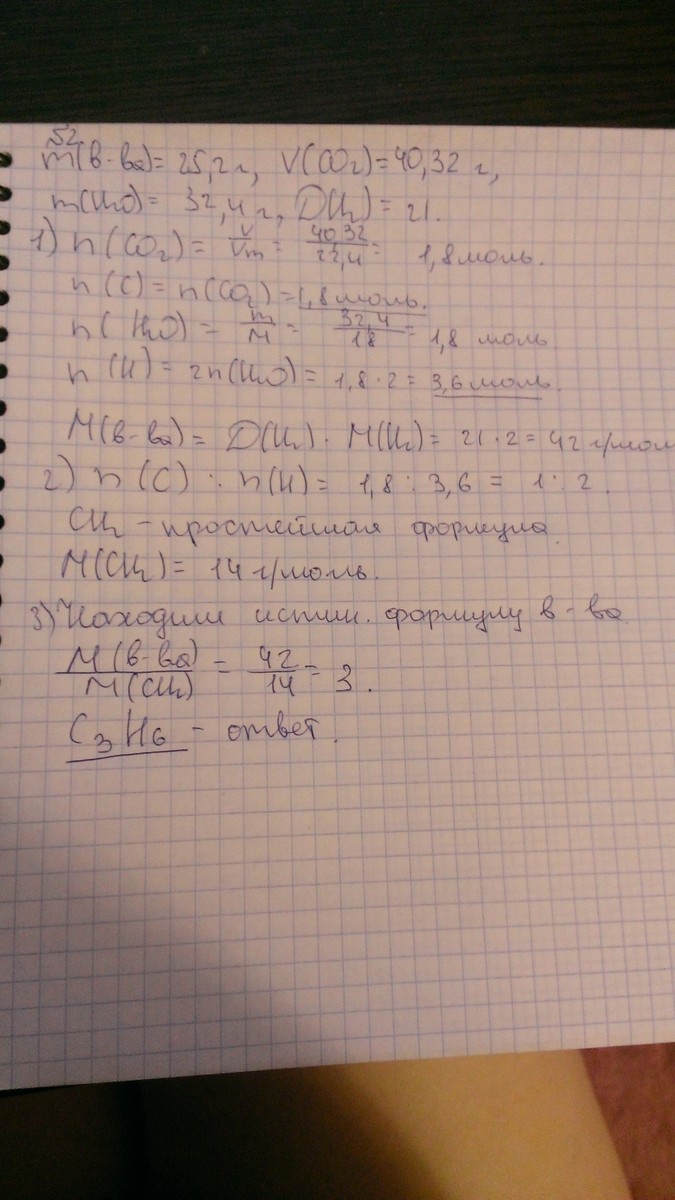 52
m(в-ва)= 25,2 г, V(CO₂)=40,32 г,
m(H₂O)= 32,4 г, D(H₂)= 21.
1) n(CO₂)= V/Vm = 40,32/22,4 = 1,8 моль.
n(C)=n(CO₂)=1,8 моль.
n(H₂O)= m/M = 32,4/18 = 1,8 моль
n(H)= 2n(H₂O)= 1,8·2= 3,6 моль.
M(в-ва)= D(H₂)· M(H₂)= 21·2= 42 г/мол
2) n(C) : n(H)= 1,8 : 3,6 = 1 : 2.
CH₂ - простейшая формула.
M(CH₂)= 14 г/моль.
3) Находим истин. формулу в-ва
M(в-ва)/M(CH₂) = 42/14 = 3.
C₃H₆ - ответ.